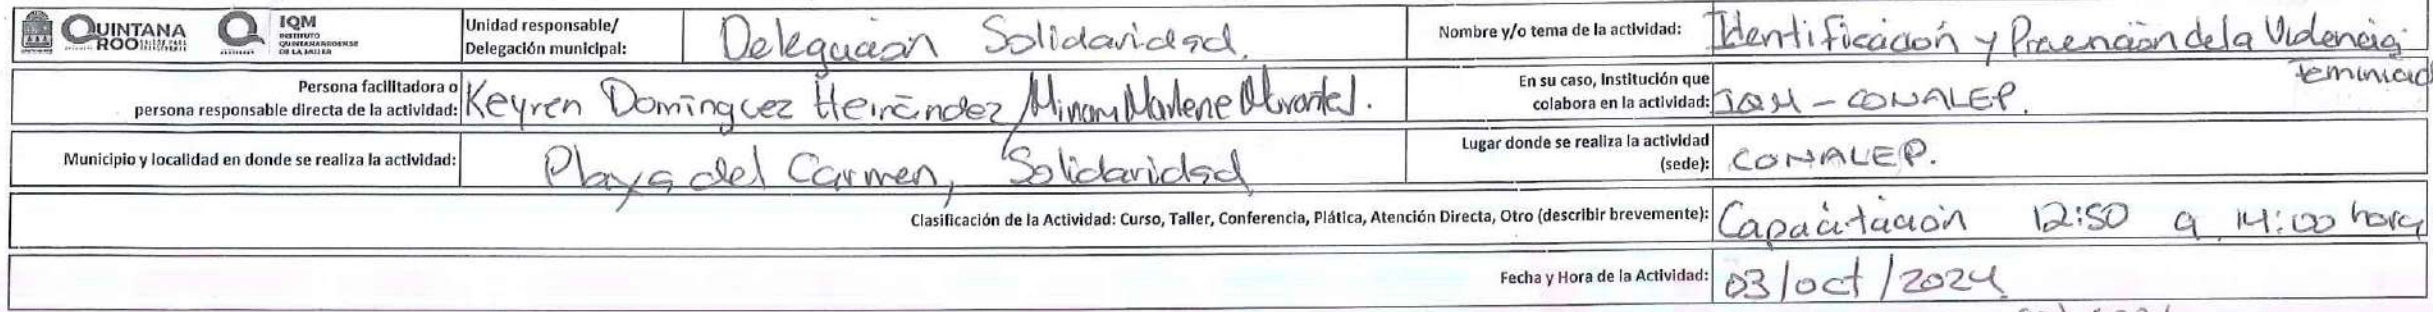 QUINTANA ROO
IQM
INSTITUTO QUINTANARROENSE DE LA MUJER
Unidad responsable/ Delegación municipal: Delegación Solidaridad.
Nombre y/o tema de la actividad: Identificación y Prevención de la Violencia feminicid
Persona facilitadora o persona responsable directa de la actividad: Keyren Domínguez Hernández / Miriam Marlene
En su caso, Institución que colabora en la actividad: IQM - CONALEP.
Municipio y localidad en donde se realiza la actividad: Playa del Carmen, Solidaridad
Lugar donde se realiza la actividad (sede): CONALEP.
Clasificación de la Actividad: Curso, Taller, Conferencia, Plática, Atención Directa, Otro (describir brevemente): Capacitación 12:50 a 14:00 horas
Fecha y Hora de la Actividad: 03/oct/2024